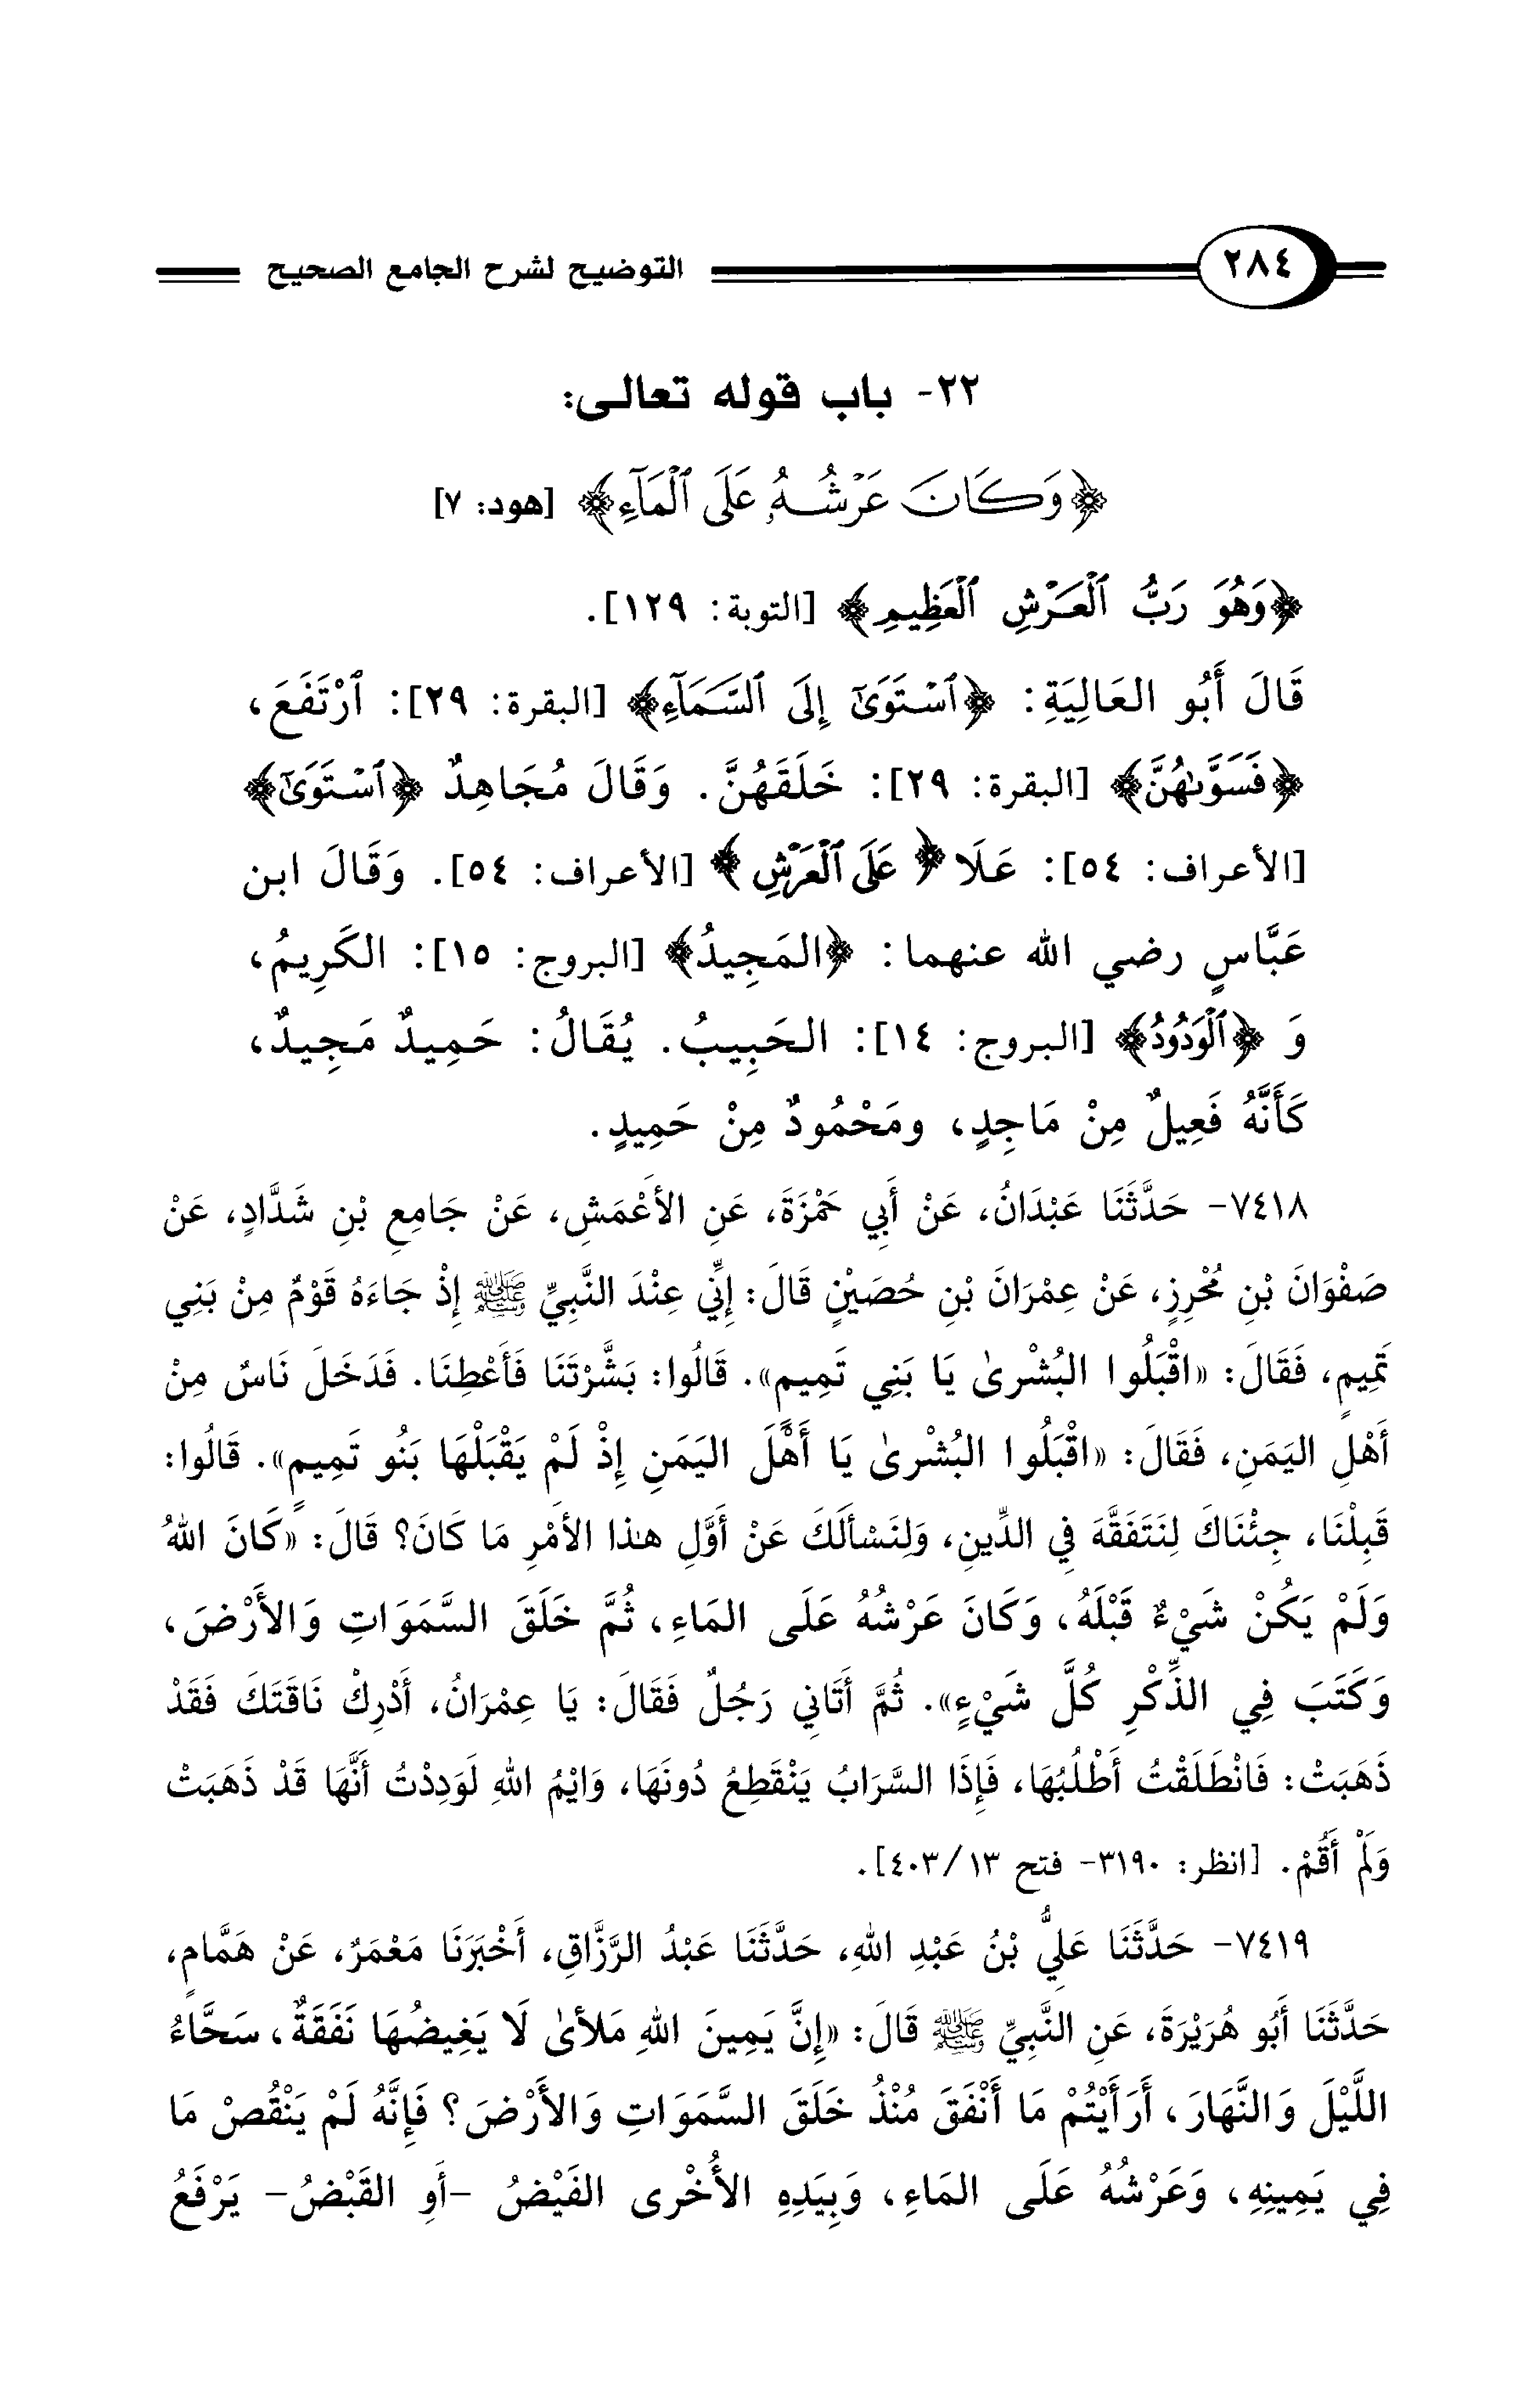 ٢٨٤ التوضيح لشرح الجامع الصحيح
٢٢- باب قوله تعالى:
﴿وَكَانَ عَرْشُهُۥ عَلَى ٱلْمَآءِ﴾ [هود: ٧]
﴿وَهُوَ رَبُّ ٱلْعَرْشِ ٱلْعَظِيمِ﴾ [التوبة: ١٢٩].
قَالَ أَبُو العَالِيَةِ: ﴿ٱسْتَوَىٰٓ إِلَى ٱلسَّمَآءِ﴾ [البقرة: ٢٩]: ٱرْتَفَعَ،
﴿فَسَوَّىٰهُنَّ﴾ [البقرة: ٢٩]: خَلَقَهُنَّ. وَقَالَ مُجَاهِدٌ ﴿ٱسْتَوَىٰٓ﴾
[الأعراف: ٥٤]: عَلَا ﴿عَلَى ٱلْعَرْشِ﴾ [الأعراف: ٥٤]. وَقَالَ ابن
عَبَّاسٍ رضي الله عنهما: ﴿المَجِيدُ﴾ [البروج: ١٥]: الكَرِيمُ،
وَ ﴿ٱلْوَدُودُ﴾ [البروج: ١٤]: الحَبِيبُ. يُقَالُ: حَمِيدٌ مَجِيدٌ،
كَأَنَّهُ فَعِيلٌ مِنْ مَاجِدٍ، ومَحْمُودٌ مِنْ حَمِيدٍ.
٧٤١٨- حَدَّثَنَا عَبْدَانُ، عَنْ أَبِي حَمْزَةَ، عَنِ الأَعْمَشِ، عَنْ جَامِعِ بْنِ شَدَّادٍ، عَنْ
صَفْوَانَ بْنِ مُحْرِزٍ، عَنْ عِمْرَانَ بْنِ حُصَيْنٍ قَالَ: إِنِّي عِنْدَ النَّبِيِّ ﷺ إِذْ جَاءَهُ قَوْمٌ مِنْ بَنِي
تَمِيمٍ، فَقَالَ: «اقْبَلُوا البُشْرىٰ يَا بَنِي تَمِيمٍ». قَالُوا: بَشَّرْتَنَا فَأَعْطِنَا. فَدَخَلَ نَاسٌ مِنْ
أَهْلِ اليَمَنِ، فَقَالَ: «اقْبَلُوا البُشْرىٰ يَا أَهْلَ اليَمَنِ إِذْ لَمْ يَقْبَلْهَا بَنُو تَمِيمٍ». قَالُوا:
قَبِلْنَا، جِئْنَاكَ لِنَتَفَقَّهَ فِي الدِّينِ، وَلِنَسْأَلَكَ عَنْ أَوَّلِ هٰذا الأَمْرِ مَا كَانَ؟ قَالَ: «كَانَ اللهُ
وَلَمْ يَكُنْ شَيْءٌ قَبْلَهُ، وَكَانَ عَرْشُهُ عَلَى المَاءِ، ثُمَّ خَلَقَ السَّمَوَاتِ وَالأَرْضَ،
وَكَتَبَ فِي الذِّكْرِ كُلَّ شَيْءٍ». ثُمَّ أَتَانِي رَجُلٌ فَقَالَ: يَا عِمْرَانُ، أَدْرِكْ نَاقَتَكَ فَقَدْ
ذَهَبَتْ: فَانْطَلَقْتُ أَطْلُبُهَا، فَإِذَا السَّرَابُ يَنْقَطِعُ دُونَهَا، وَايْمُ اللهِ لَوَدِدْتُ أَنَّهَا قَدْ ذَهَبَتْ
وَلَمْ أَقُمْ. [انظر: ٣١٩٠- فتح ١٣/ ٤٠٣].
٧٤١٩- حَدَّثَنَا عَلِيُّ بْنُ عَبْدِ اللهِ، حَدَّثَنَا عَبْدُ الرَّزَّاقِ، أَخْبَرَنَا مَعْمَرٌ، عَنْ هَمَّامٍ،
حَدَّثَنَا أَبُو هُرَيْرَةَ، عَنِ النَّبِيِّ ﷺ قَالَ: «إِنَّ يَمِينَ اللهِ مَلأىٰ لَا يَغِيضُهَا نَفَقَةٌ، سَحَّاءُ
اللَّيْلَ وَالنَّهَارَ، أَرَأَيْتُمْ مَا أَنْفَقَ مُنْذُ خَلَقَ السَّمَوَاتِ وَالأَرْضَ؟ فَإِنَّهُ لَمْ يَنْقُصْ مَا
فِي يَمِينِهِ، وَعَرْشُهُ عَلَى المَاءِ، وَبِيَدِهِ الأُخْرى الفَيْضُ -أَوِ القَبْضُ- يَرْفَعُ